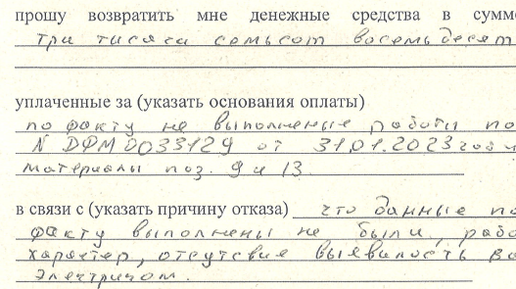 прошу возвратить мне денежные средства в сумме
три тисяси семьсот восемьдесят
уплаченные за (указать основания оплаты)
по факту не выполненые работы по
N ДФМ0033129 от 31.01.2023 години
материалы поз. 9 и 13
в связи с (указать причину отказа) что данные по
факту выполнены не были, рабо
характер, отсутсвие выявилость
электриком.